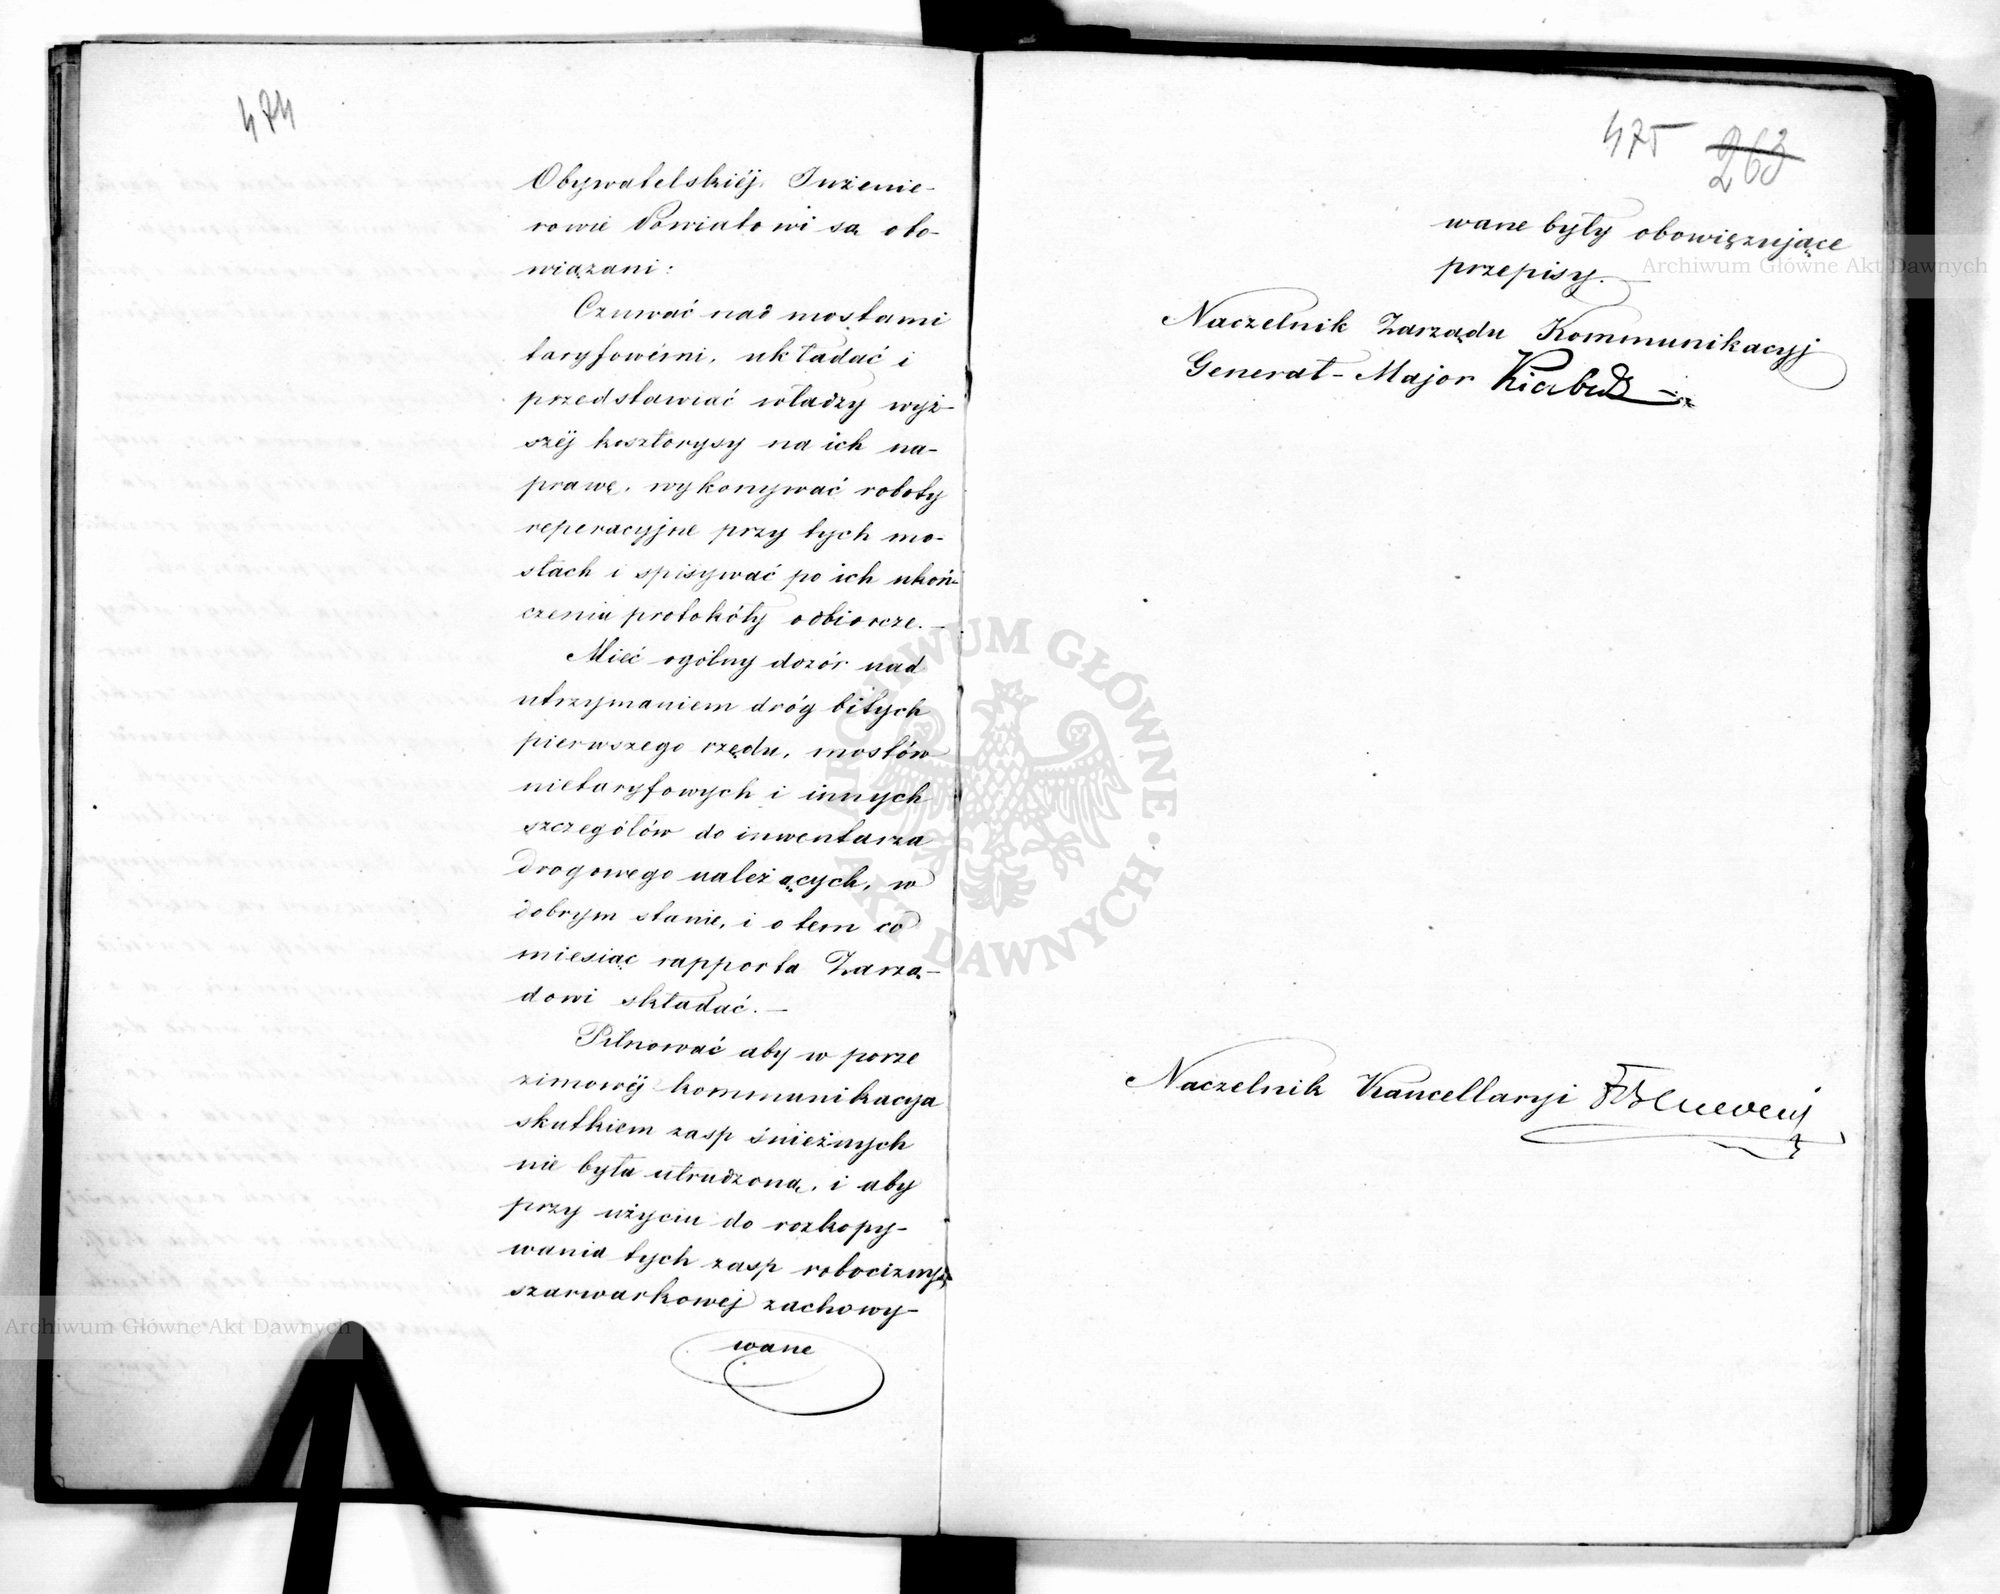 474
Obywatelskiéj Inżenie-
rowie Powiatowi są obo-
wiązani:
Czuwać nad mostami
taryfowémi, układać i
przedstawiać władzy wyż-
széj kosztorysy na ich na-
prawę, wykonywać roboty
reperacyjne przy tych mo-
stach i spisywać po ich ukoń-
czeniu protokóły odbiorcze. —
Mieć ogólny dozór nad
utrzymaniem dróg bitych
pierwszego rzędu, mostów
nietaryfowych i innych
szczegółów do inwentarza
drogowego należących, w
dobrym stanie, i o tem co
miesiąc rapporta Zarzą-
dowi składać. —
Pilnować aby w porze
zimowéj kommunikacya
skutkiem zasp śnieżnych
nie była utrudzoną, i aby
przy użyciu do rozkopy-
wania tych zasp robocizny
szarwarkowej zachowy-
wane
475 263
wane były obowięzujące
przepisy. —
Naczelnik Zarządu Kommunikacyj
Generał-Major
Naczelnik Kancellaryi
ARCHIWUM GŁÓWNE AKT DAWNYCH
Archiwum Główne Akt Dawnych
Archiwum Główne Akt Dawnych